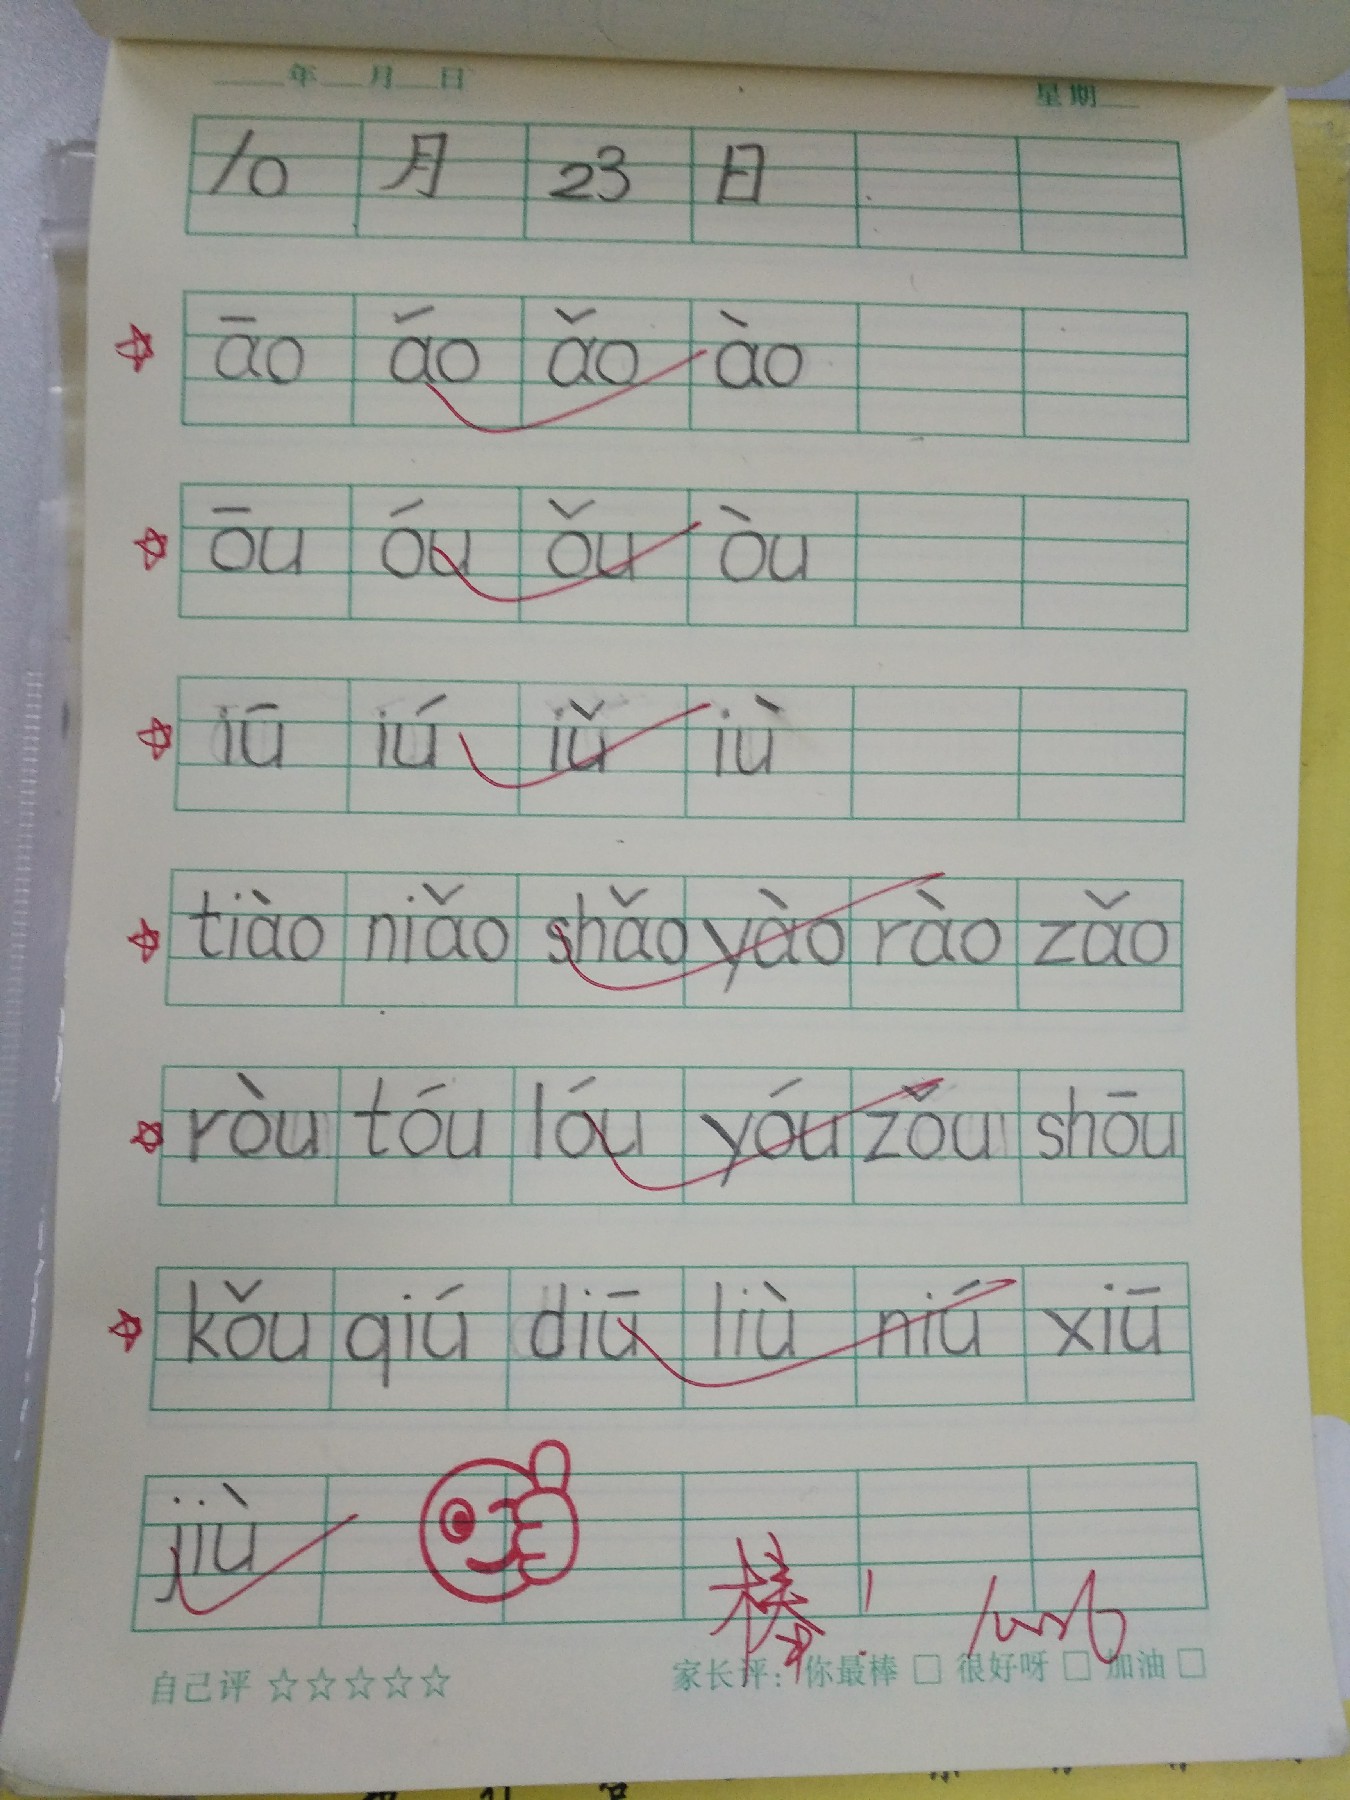 年 月 日 星期
10 月 23 日
āo áo ǎo ào
ōu óu ǒu òu
iū iú iǔ iù
tiào niǎo shǎo yào rào zǎo
ròu tóu lóu yóu zǒu shōu
kǒu qiú diū liù niú xiū
jiù
棒!
自己评 ☆☆☆☆☆ 家长评: 你最棒 □ 很好呀 □ 加油 □